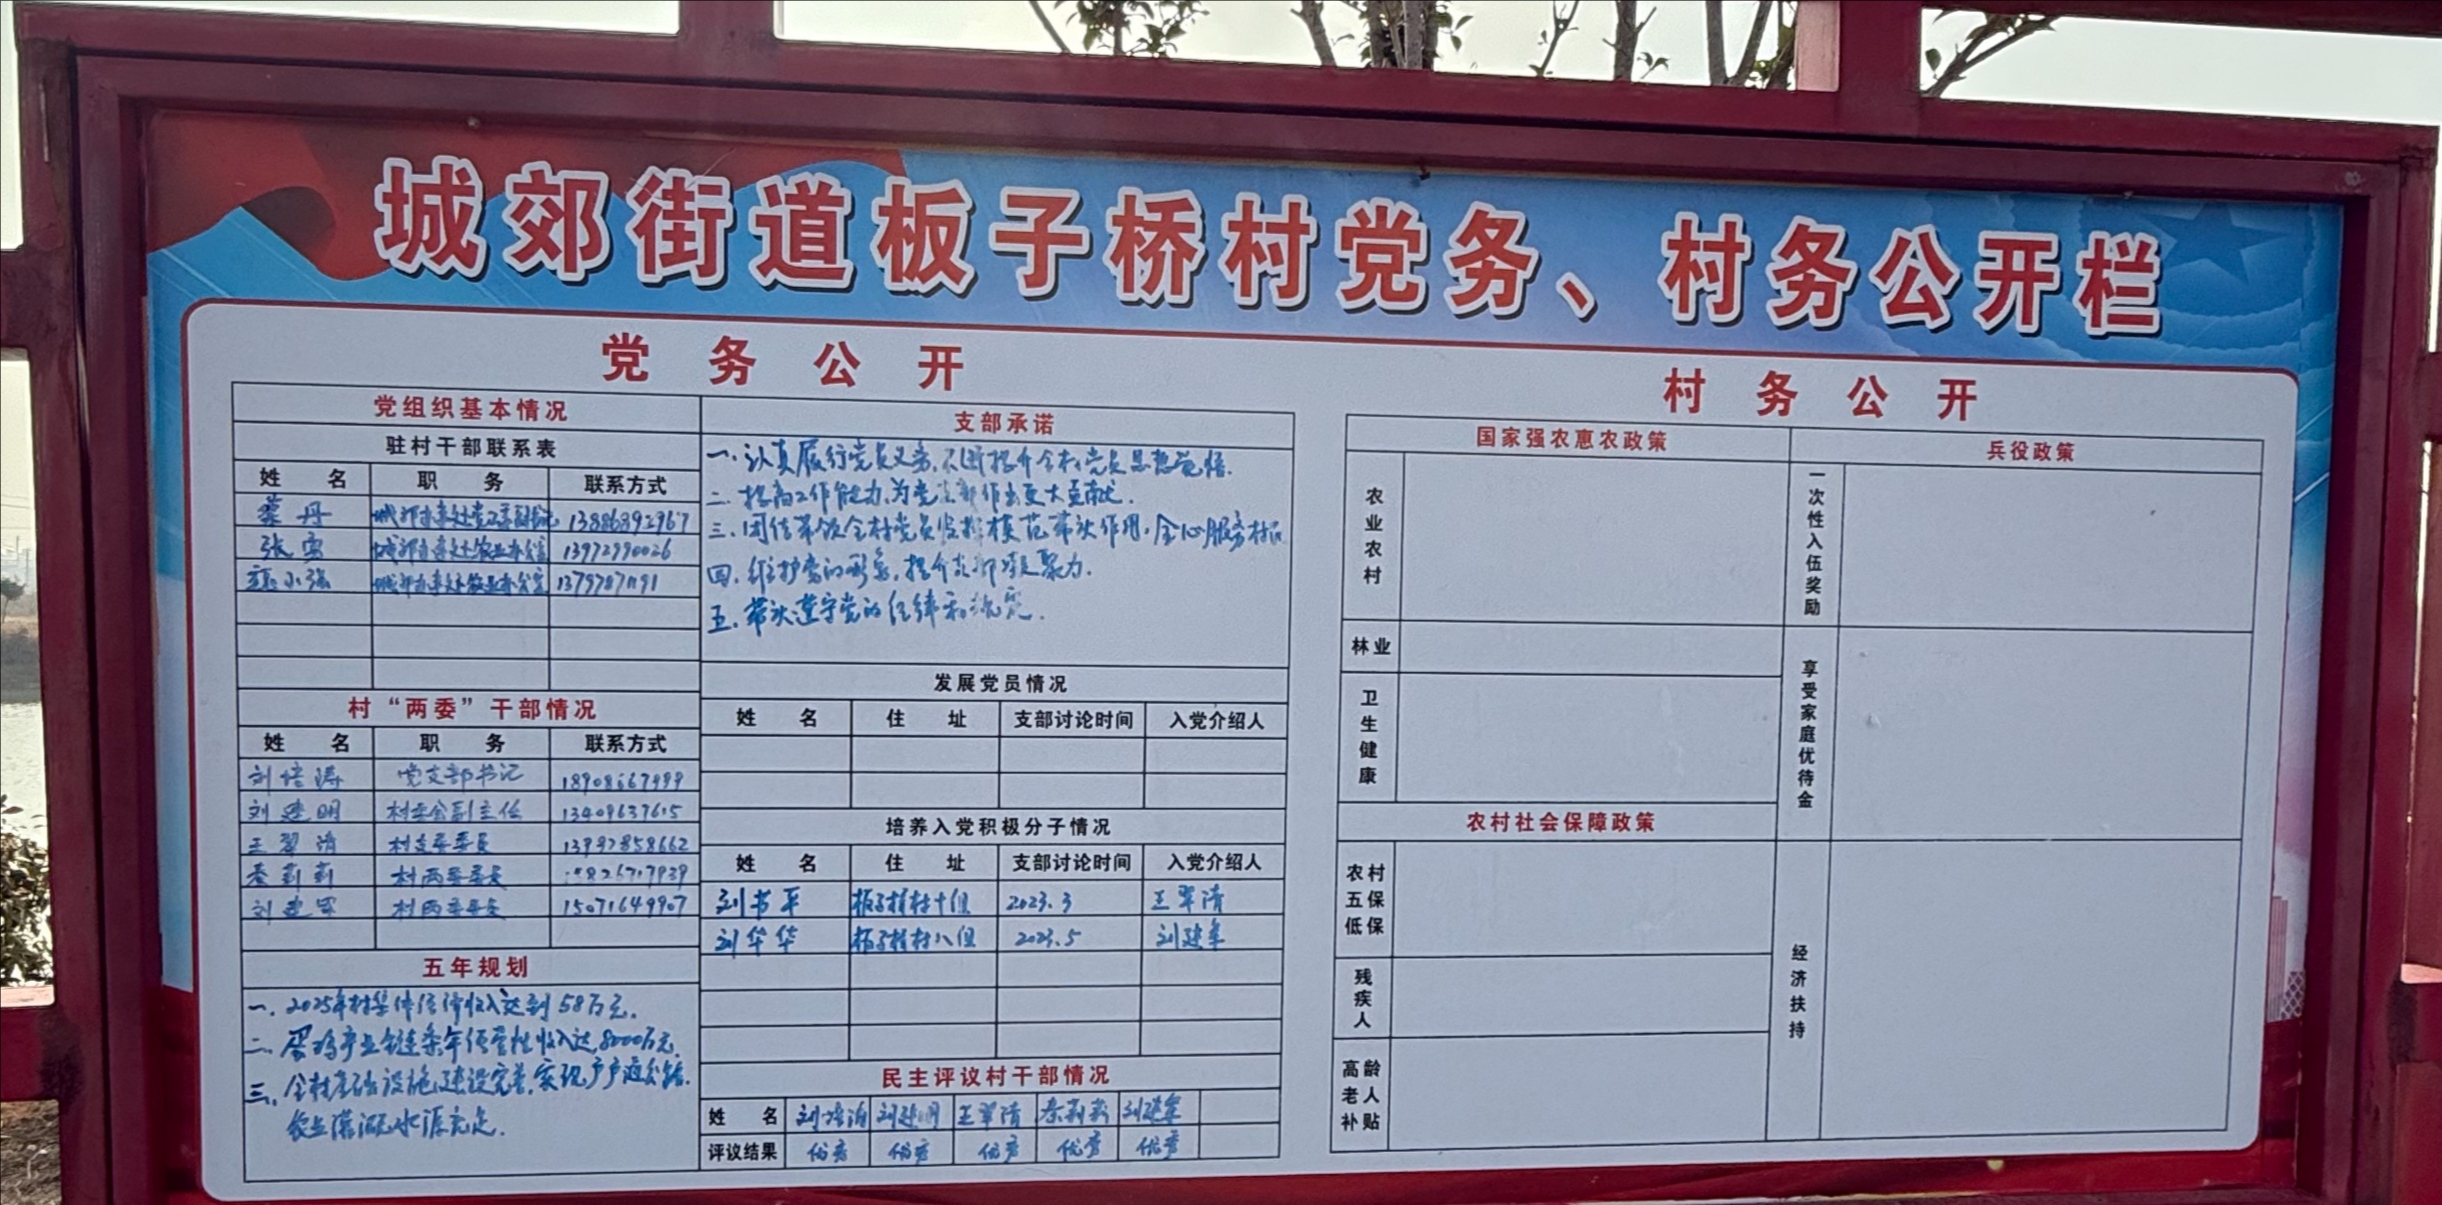 城郊街道板子桥村党务、村务公开栏
党务公开
党组织基本情况
驻村干部联系表
姓名 职务 联系方式
丹 13886892967
张 13972990026
小强
村“两委”干部情况
姓名 职务 联系方式
刘培涛 党支部书记 18908667999
刘建明 村委会副主任 13409637615
王翠清 村支委委员 13997858662
秦莉莉 村两委委员
刘建军 村两委委员 15071649907
五年规划
一、2025年村集体经济收入达到58万元。
二、蛋鸡产业链条年经营性收入达8000万元。
三、全村基础设施建设完善,实现户户通公路。
农业灌溉水源充足。
支部承诺
一、认真履行党员义务,不断提升全村党员思想觉悟。
二、提高工作能力,为党支部作出更大贡献。
三、团结带领全村党员发挥模范带头作用,全心服务村民
四、维护党的形象,提升支部凝聚力。
五、带头遵守党的纪律和规定。
发展党员情况
姓名 住址 支部讨论时间 入党介绍人
培养入党积极分子情况
姓名 住址 支部讨论时间 入党介绍人
刘书平 板子桥村十组 2023.3 王翠清
刘华华 板子桥村八组 2023.5 刘建军
民主评议村干部情况
姓名 刘培涛 刘建明 王翠清 秦莉莉 刘建军
评议结果 优秀 优秀 优秀 优秀 优秀
村务公开
国家强农惠农政策
农业农村
林业
卫生健康
农村社会保障政策
农村五保低保
残疾人
高龄老人补贴
兵役政策
一次性入伍奖励
享受家庭优待金
经济扶持